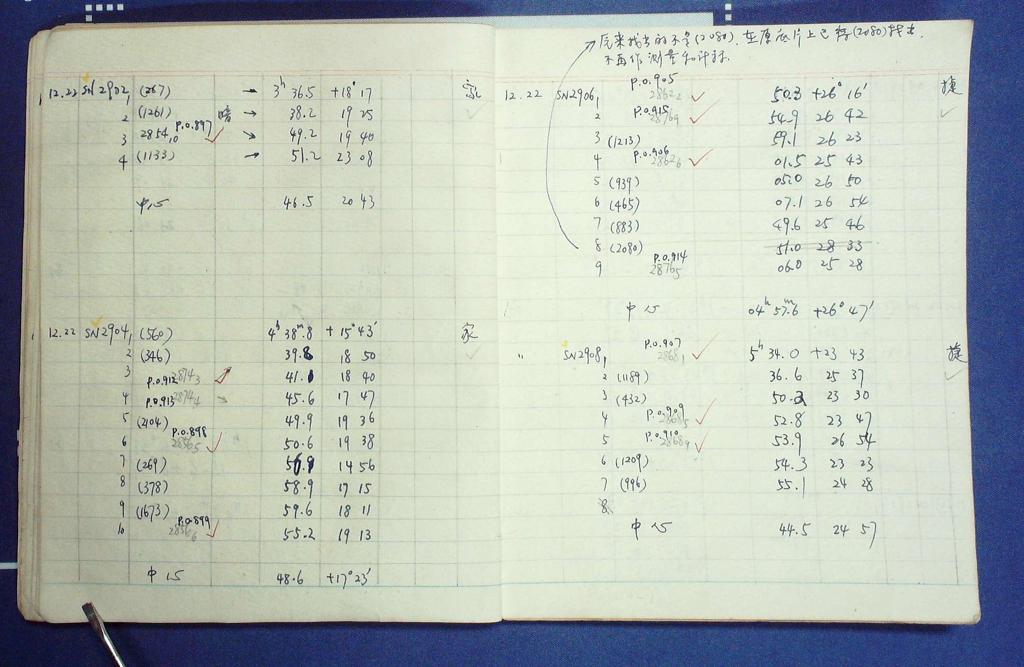 12.22 SN2902 1 (267) → 3h 36.5 +18° 17 家
2 (1261) 暗 → 38.2 19 25
3 2854 10 P.O.897 → 49.2 19 40
4 (1133) → 51.2 23 08
中心 46.5 20 43
12.22 SN2904 1 (560) 4h 38m.8 +15° 43' 家
2 (346) 39.8 18 50
3 P.O.912 2874 3 41.1 18 40
4 P.O.913 2874 4 45.6 17 47
5 (2104) 49.9 19 36
6 P.O.898 2856 5 50.6 19 38
7 (269) 14 56
8 (378) 58.9 17 15
9 (1673) 59.6 18 11
10 P.O.899 2856 6 55.2 19 13
中心 48.6 +17° 23'
原来找出的不是(2080),在原底片上已将(2080)找出
不再作测量和计标
12.22 SN2906 1 P.O.905 2862 2 50.3 +26° 16' 捷
2 P.O.915 2876 9 54.9 26 42
3 (1213) 59.1 26 23
4 P.O.906 2862 6 01.5 25 43
5 (939) 05.0 26 50
6 (465) 07.1 26 54
7 (883) 49.6 25 46
8 (2080) 51.0 28 33
9 P.O.914 2876 5 06.0 25 28
中心 04h 57m.6 +26° 47'
" SN2908 1 P.O.907 2868 1 5h 34.0 +23 43 捷
2 (1189) 36.6 25 37
3 (432) 50.2 23 30
4 P.O.909 2868 5 52.8 23 47
5 P.O.910 2868 9 53.9 26 54
6 (1209) 54.3 23 23
7 (996) 55.1 24 28
8
中心 44.5 24 57